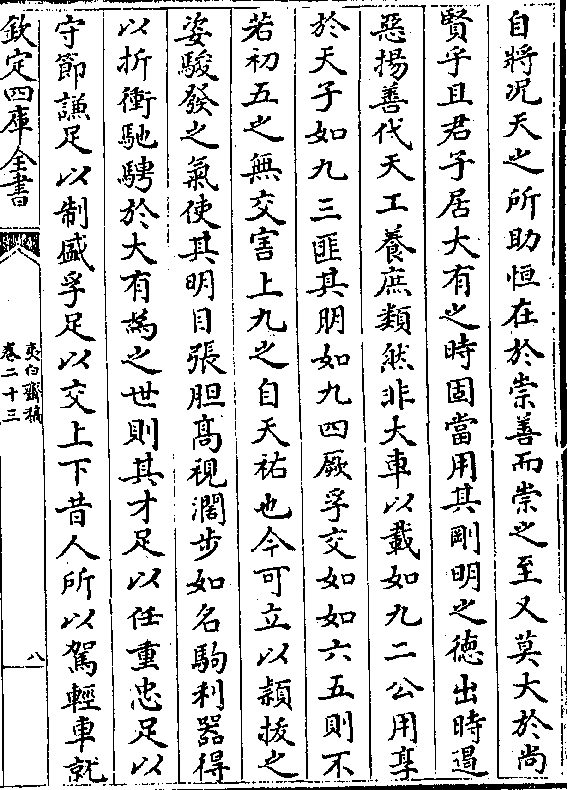 自將况天之所助恒在於崇善而崇之至又莫大於尚
賢乎且君子居大有之時固當用其剛明之徳出時遏
惡揚善代天工養庶類然非大車以載如九二公用享
於天子如九三匪其朋如九四厥孚交如如六五則不
若初五之無交害上九之自天祐也今可立以穎拔之
姿駿發之氣使其明目張胆髙視濶步如名駒利器得
以折衝馳騁於大有為之世則其才足以任重忠足以
守節謙足以制盛孚足以交上下昔人所以駕輕車就
欽定四庫全書
夷白齋稿
卷二十三
八